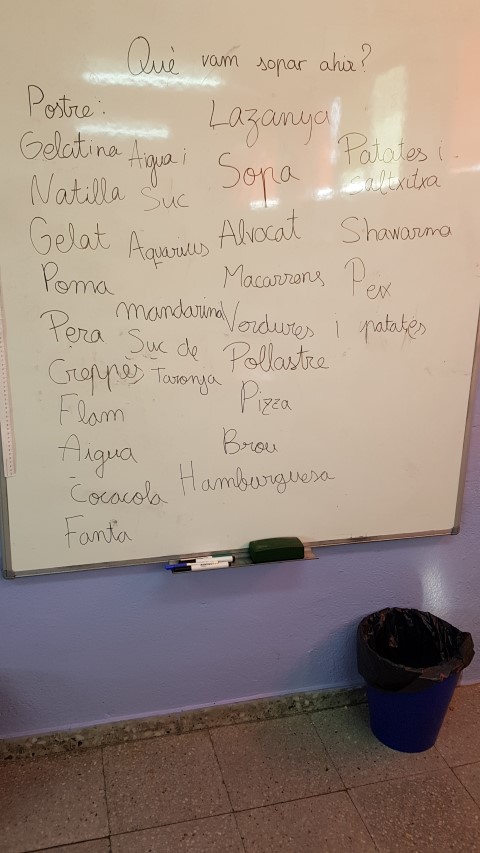 Què vam sopar ahir?
Postre:
Gelatina
Natilla
Gelat
Poma
Pera
Creppès
Flam
Aigua
Cocacola
Fanta
Aigua i
Suc
Aquarius
mandarina
Suc de
Taronja
Lazanya
Sopa
Alvocat
Macarrons
Verdures i patates
Pollastre
Pizza
Brou
Hamburguesa
Patates i
Saltxitxa
Shawarma
Peix